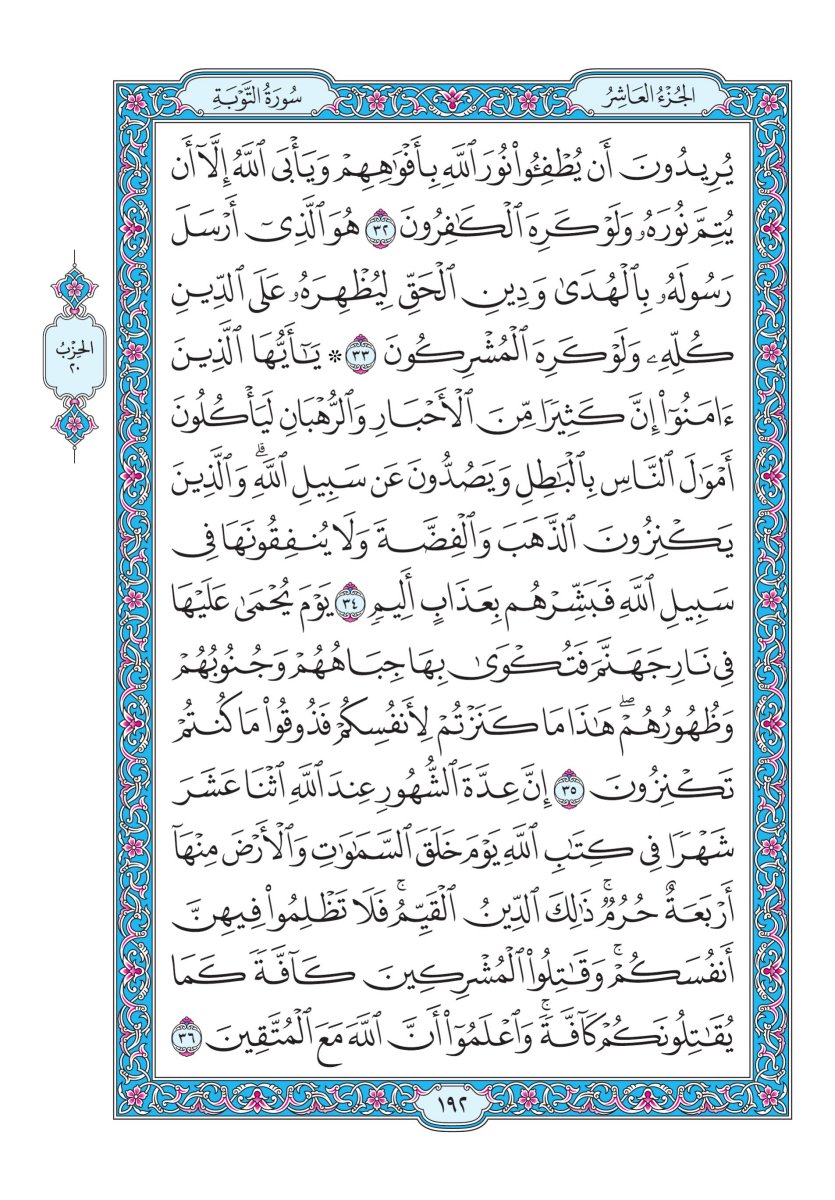 الجُزْءُ العَاشِرُ
سُورَةُ التَّوْبَةِ
يُرِيدُونَ أَن يُطْفِـُٔوا۟ نُورَ ٱللَّهِ بِأَفْوَٰهِهِمْ وَيَأْبَى ٱللَّهُ إِلَّآ أَن
يُتِمَّ نُورَهُۥ وَلَوْ كَرِهَ ٱلْكَٰفِرُونَ ٣٢ هُوَ ٱلَّذِىٓ أَرْسَلَ
رَسُولَهُۥ بِٱلْهُدَىٰ وَدِينِ ٱلْحَقِّ لِيُظْهِرَهُۥ عَلَى ٱلدِّينِ
كُلِّهِۦ وَلَوْ كَرِهَ ٱلْمُشْرِكُونَ ٣٣ * يَٰٓأَيُّهَا ٱلَّذِينَ
ءَامَنُوٓا۟ إِنَّ كَثِيرًا مِّنَ ٱلْأَحْبَارِ وَٱلرُّهْبَانِ لَيَأْكُلُونَ
أَمْوَٰلَ ٱلنَّاسِ بِٱلْبَٰطِلِ وَيَصُدُّونَ عَن سَبِيلِ ٱللَّهِۗ وَٱلَّذِينَ
يَكْنِزُونَ ٱلذَّهَبَ وَٱلْفِضَّةَ وَلَا يُنفِقُونَهَا فِى
سَبِيلِ ٱللَّهِ فَبَشِّرْهُم بِعَذَابٍ أَلِيمٍ ٣٤ يَوْمَ يُحْمَىٰ عَلَيْهَا
فِى نَارِ جَهَنَّمَ فَتُكْوَىٰ بِهَا جِبَاهُهُمْ وَجُنُوبُهُمْ
وَظُهُورُهُمْۖ هَٰذَا مَا كَنَزْتُمْ لِأَنفُسِكُمْ فَذُوقُوا۟ مَا كُنتُمْ
تَكْنِزُونَ ٣٥ إِنَّ عِدَّةَ ٱلشُّهُورِ عِندَ ٱللَّهِ ٱثْنَا عَشَرَ
شَهْرًا فِى كِتَٰبِ ٱللَّهِ يَوْمَ خَلَقَ ٱلسَّمَٰوَٰتِ وَٱلْأَرْضَ مِنْهَآ
أَرْبَعَةٌ حُرُمٌۚ ذَٰلِكَ ٱلدِّينُ ٱلْقَيِّمُۚ فَلَا تَظْلِمُوا۟ فِيهِنَّ
أَنفُسَكُمْۚ وَقَٰتِلُوا۟ ٱلْمُشْرِكِينَ كَآفَّةً كَمَا
يُقَٰتِلُونَكُمْ كَآفَّةًۚ وَٱعْلَمُوٓا۟ أَنَّ ٱللَّهَ مَعَ ٱلْمُتَّقِينَ ٣٦
الحِزْبُ
٢٠
١٩٢